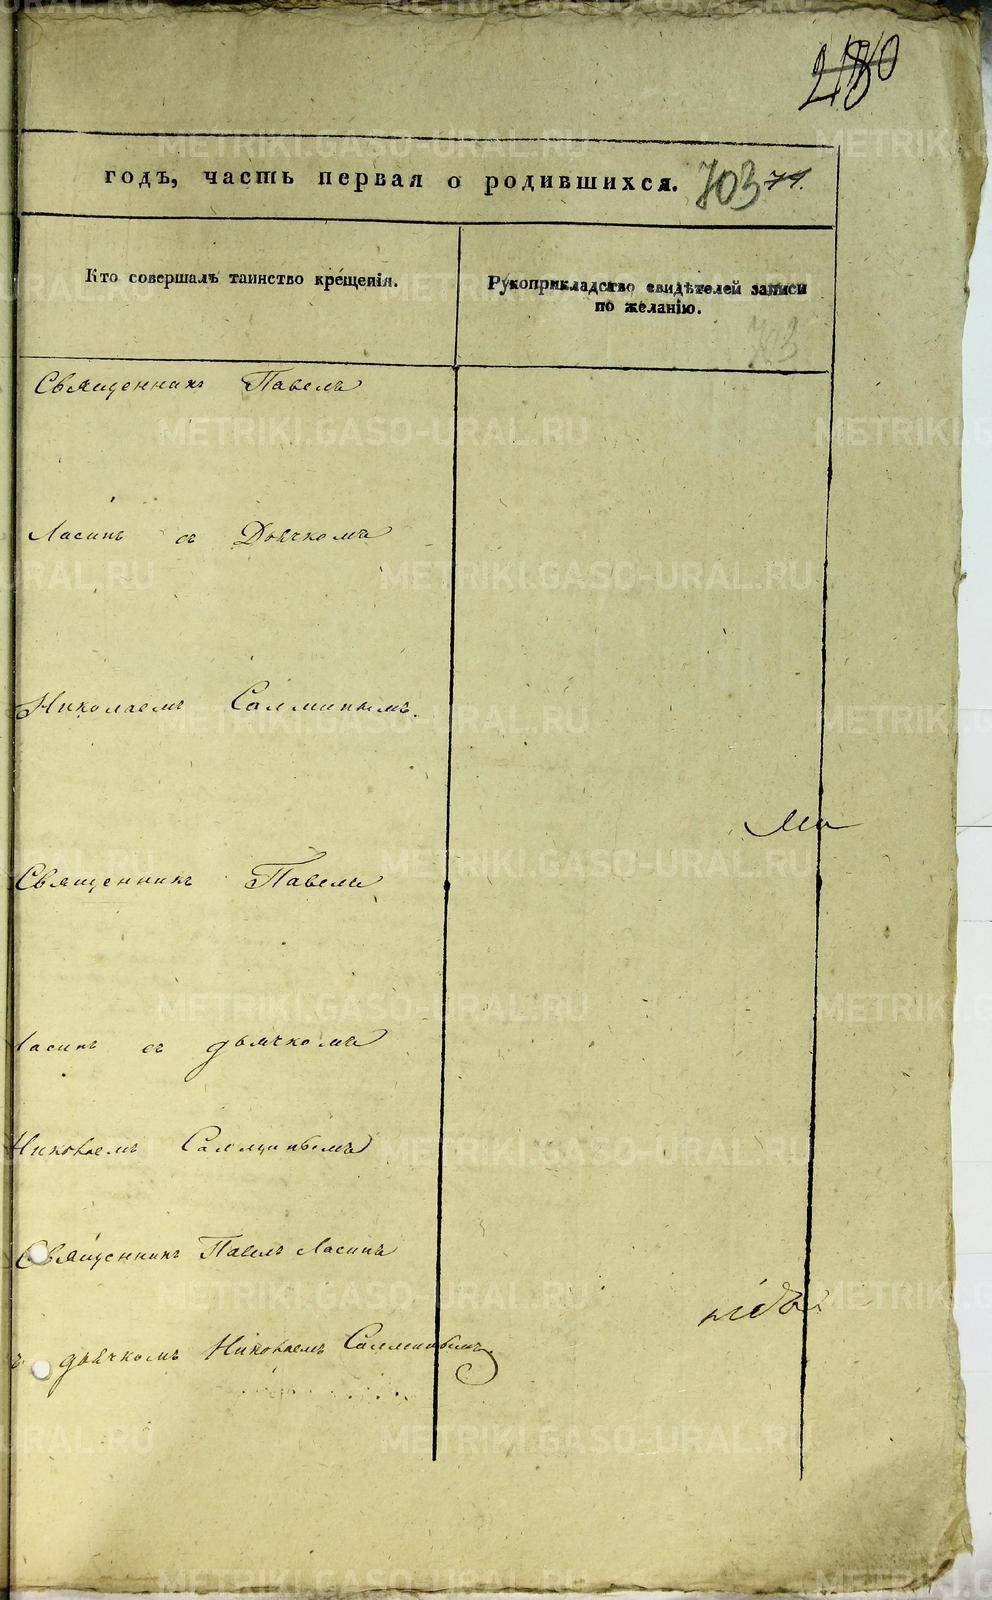 годъ, часть первая о родившихся. 703
Кто совершалъ таинство крещенія.
Рукоприкладство свидѣтелей записи
по желанію.
703
Священникъ Павелъ
Ласинъ съ Дьячкомъ
Николаемъ Салминымъ.
Священникъ Павелъ
Ласинъ съ дьячкомъ
Николаемъ Салминымъ
Священникъ Павелъ Ласинъ
съ дьячкомъ Николаемъ Салминымъ
METRIKI.GASO-URAL.RU